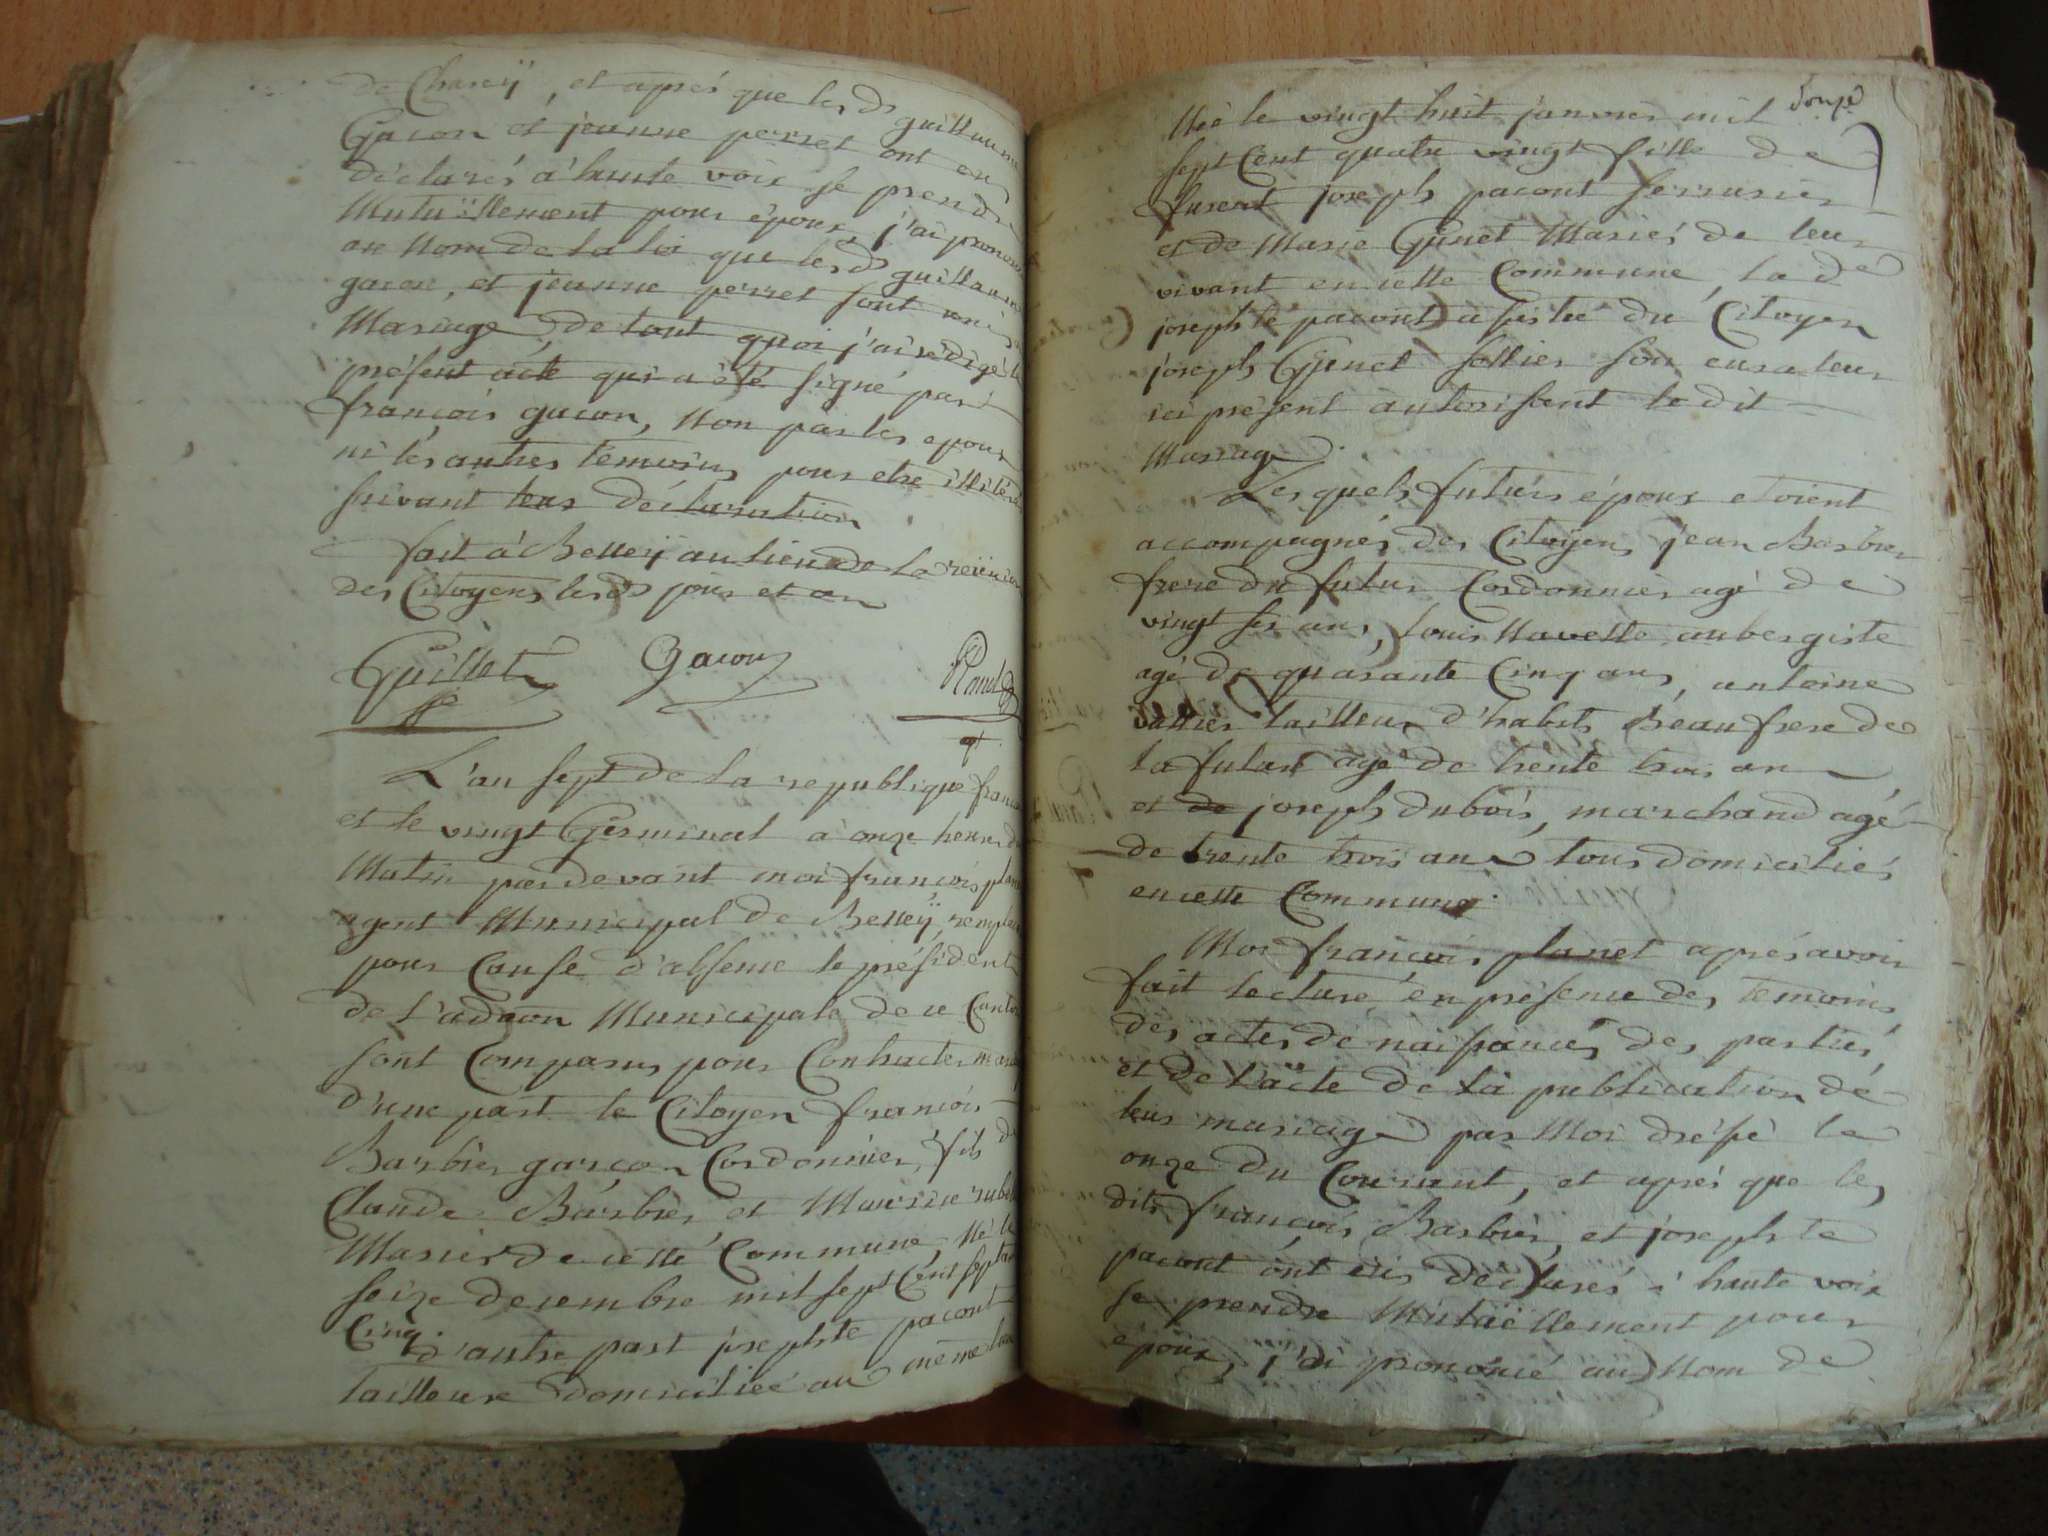 de Charey, et aprés que lesds guillaume
Gacon et jeanne perret ont eu
déclarés à haute voix se prendre
Mutuëllement pour époux, j'ai prononcé
au Nom de la loi que lesds guillaume
gacon, et jeanne perret sont unis
Mariage, de tout quoi j'ai rédigé le
présent acte qui a été signé par
françois gacon, Non par les epoux
ni les autres temoins pour etre illitérés
suivant leur déclaration
fait à Belleÿ au lieu de la reünion
des Citoyens lesds jour et an
Guillot Gacon Planet
L'an sept de la republique francaise
et le vingt Germinal à onze heures du
Matin pardevant moi françois planet
agent Municipal de Belleÿ, remplaçant
pour Cause d'absence le président
de l'adaon Municipale de ce Canton
sont Comparus pour Contracter mariage
d'une part le Citoyen francois
Barbier garçon Cordonnier, fils de
Claude Barbier et Maurise
Mariés de cette Commune, Né le
seize decembre mil sept Cent septante
Cinq.
d'autre part josephte pacout
tailleuse domiciliée au même lieu
douze
Née le vingt huit janvier mil
sept Cent quatre vingt fille de
furent joseph pacout serrurier
et de Marie Ginet Mariés de leur
vivant en cette Commune, la de
josephte pacout assistée du Citoyen
joseph Ginet sellier son curateur
ici présent autorisant le dit
Mariage.
Lesquels futurs époux etoient
accompagnés des Citoyens jean Barbier
frere du futur Cordonnier agé de
vingt six ans, louis Navette aubergiste
agé de quarante Cinq ans, antoine
vallier tailleur d'habits Beaufrere de
la future agé de trente trois an
et de joseph dubois, marchand agé
de trente trois ans tous domiciliés
en cette Commune.
Moi francois planet aprés avoir
fait lecture en présence des temoins
des actes de naissances des parties,
et de l'acte de la publication de
leur mariage par Moi dressé le
onze du Courant, et aprés que les
dits françois Barbier, et josephte
pacout ont eus déclarés à haute voix
se prendre Mutuëllement pour
époux, j'ai prononcé au Nom de